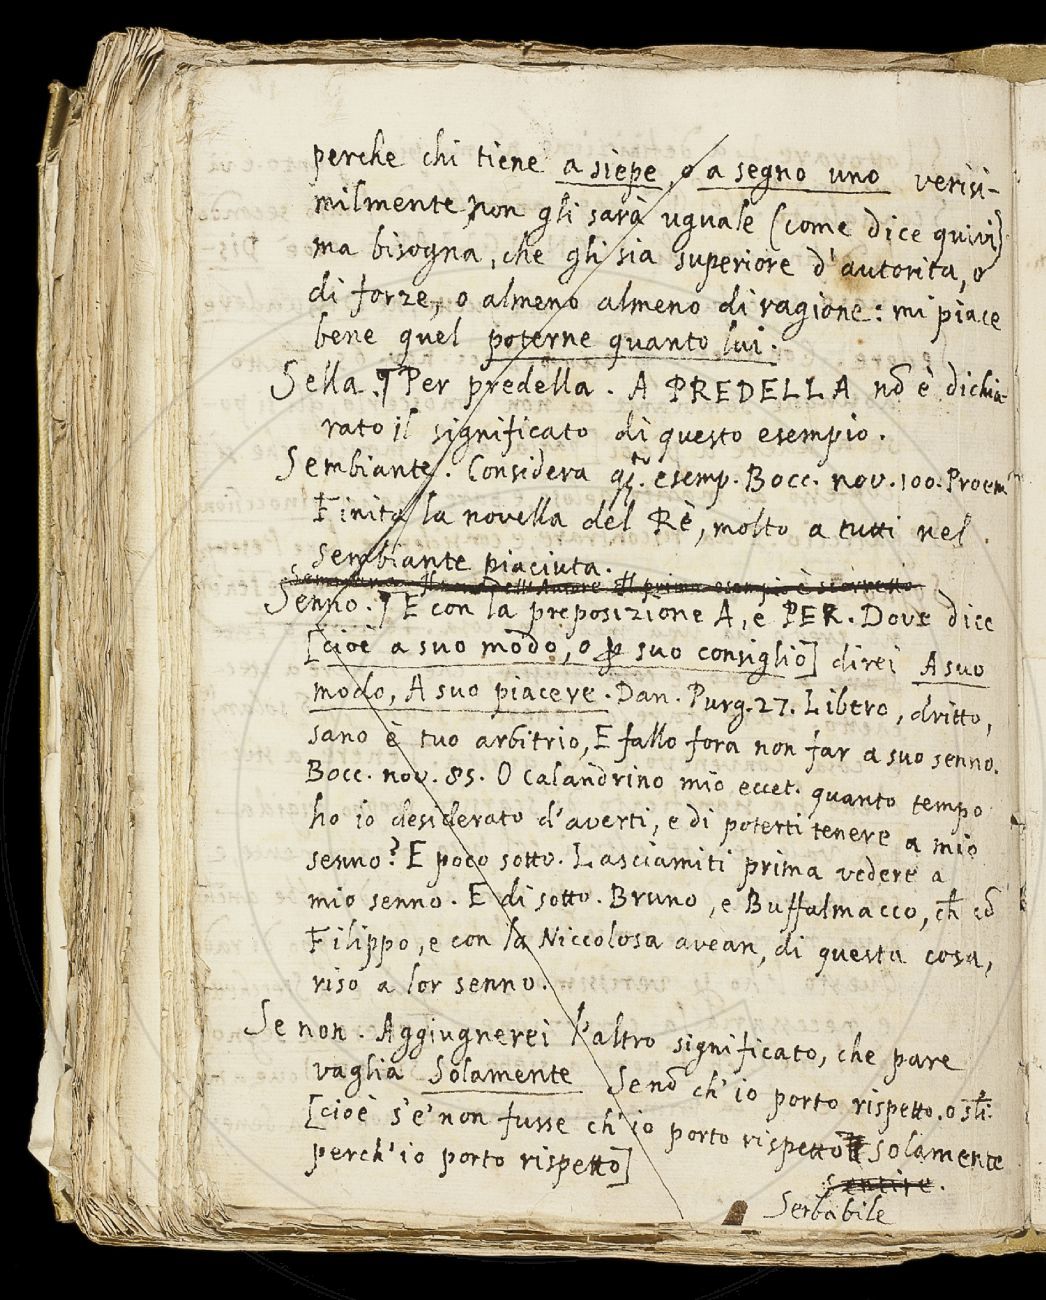 perche chi tiene a siepe, o a segno uno verisi-
milmente non gli sarà uguale (come dice quivi)
ma bisogna, che gli sia superiore d'autorita, o
di forze, o almeno almeno di ragione: mi piace
bene quel poterne quanto lui.
Sella. ¶ Per predella. A PREDELLA nō è dichia-
rato il significato di questo esempio.
Sembiante. Considera qto. esemp. Bocc. nov. 100. Proem.
Finita la novella del Rè, molto a tutti nel
sembiante piaciuta.
Il primo esempio è scorretto
Senno. ¶ E con la preposizione A, e PER. Dove dice
[cioè a suo modo, o ꝑ suo consiglio] direi A suo
modo, A suo piacere. Dan. Purg. 27. Libero, dritto,
sano è tuo arbitrio, E fallo fora non far a suo senno.
Bocc. nov. 85. O Calandrino mio eccet. quanto tempo
ho io desiderato d'averti, e di poterti tenere a mio
senno? E poco sotto. Lasciamiti prima vedere a
mio senno. E di sotto. Bruno, e Buffalmacco, ch̄ cō
Filippo, e con la Niccolosa avean, di questa cosa,
riso a lor senno.
Se non. Aggiugnerei l'altro significato, che pare
vaglia Solamente Senō ch'io porto rispetto. o sīli.
[cioè s'e' non fusse ch'io porto rispetto solamente
perch'io porto rispetto]
Sentire.
Serbabile